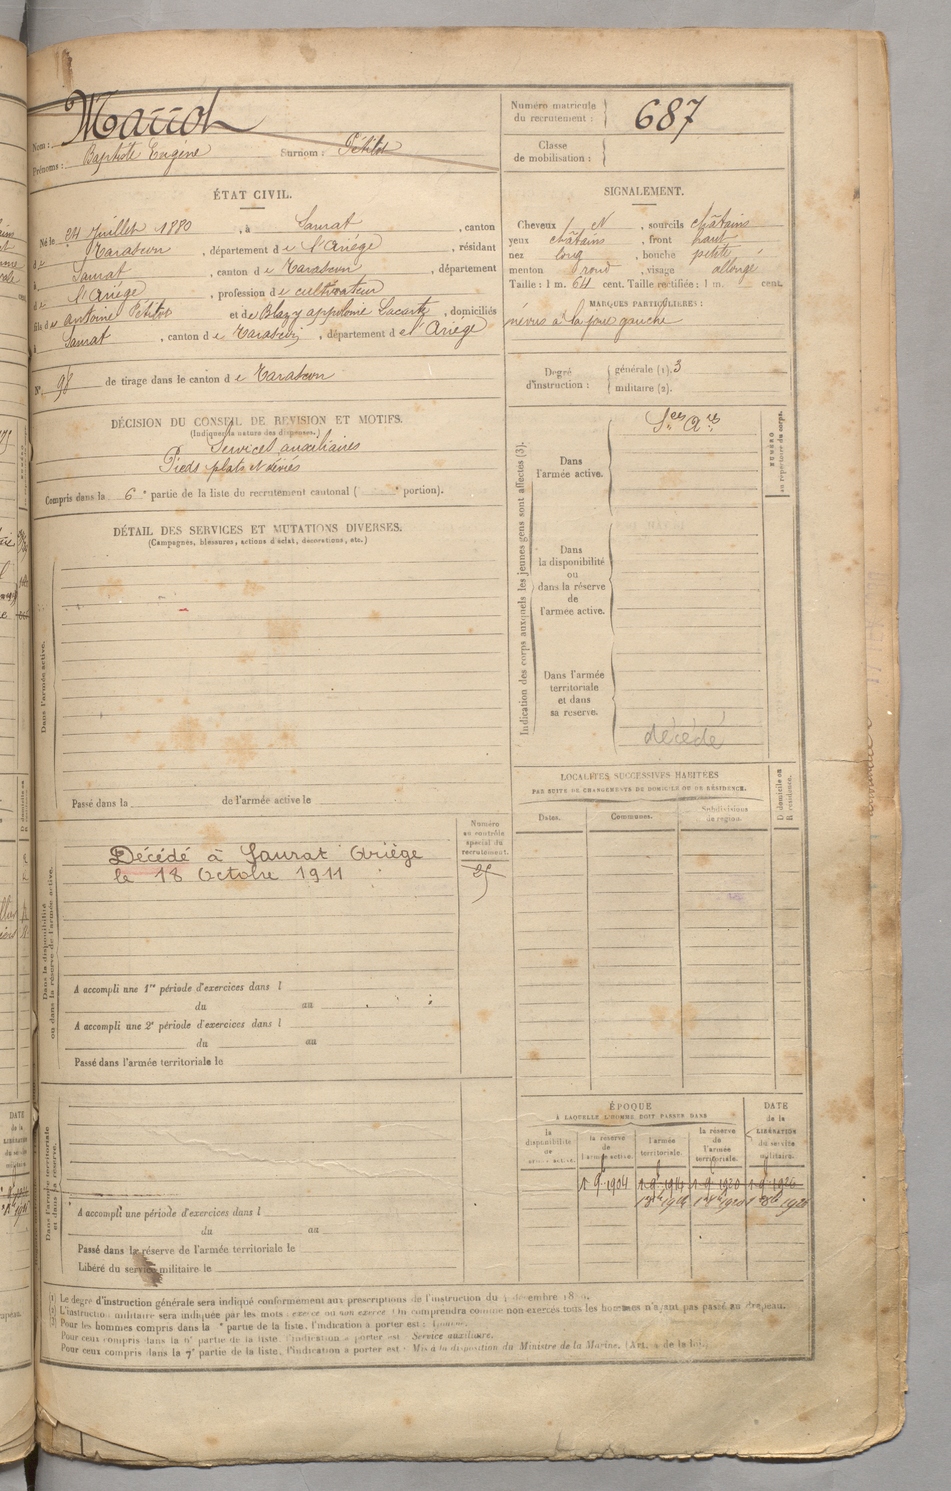 Nom : Marrot
Prénoms : Baptiste Eugène Surnom : Pétitot
Numéro matricule
du recrutement : 687
Classe
de mobilisation :
ÉTAT CIVIL.
Né le 24 Juillet 1880, à Saurat, canton
de Tarascon, département de l'Ariége, résidant
à Saurat, canton de Tarascon, département
de l'Ariége, profession de cultivateur
fils de Antoine Pétitot et de Blazy appolonie, domiciliés
à Saurat, canton de Tarascon, département de l'Ariége
N° 98 de tirage dans le canton de Tarascon
SIGNALEMENT.
Cheveux et, sourcils châtains
yeux châtains, front haut
nez long, bouche petite
menton rond, visage allongé
Taille : 1 m. 64 cent. Taille rectifiée : 1 m. cent.
MARQUES PARTICULIÈRES :
nœvus à la joue gauche
Degré
d'instruction :
générale (1). 3
militaire (2).
DÉCISION DU CONSEIL DE REVISION ET MOTIFS.
(Indiquer la nature des dispenses.)
Services auxiliaires
Pieds plats et déviés
Compris dans la 6e partie de la liste du recrutement cantonal ( portion).
DÉTAIL DES SERVICES ET MUTATIONS DIVERSES.
(Campagnes, blessures, actions d'éclat, décorations, etc.)
Dans l'armée active.
Passé dans la de l'armée active le
Indication des corps auxquels les jeunes gens sont affectés (3).
Dans
l'armée active.
Ses Ares
NUMÉRO
au répertoire du corps.
Dans
la disponibilité
ou
dans la réserve
de
l'armée active.
Dans l'armée
territoriale
et dans
sa reserve.
décédé
LOCALITÉS SUCCESSIVES HABITÉES
PAR SUITE DE CHANGEMENTS DE DOMICILE OU DE RÉSIDENCE.
Dates.
Communes.
Subdivisions
de région.
D domicile ou
R résidence.
Dans la disponibilité
ou dans la réserve de l'armée active.
Numéro
au contrôle
special du
recrutement.
Décédé à Saurat Ariège
le 18 Octobre 1911
A accompli une 1re période d'exercices dans l
du au
A accompli une 2e période d'exercices dans l
du au
Passé dans l'armée territoriale le
Dans l'armée territoriale
et dans sa réserve.
A accompli une période d'exercices dans l
du au
Passé dans la réserve de l'armée territoriale le
Libéré du service militaire le
ÉPOQUE
À LAQUELLE L'HOMME DOIT PASSER DANS
DATE
de la
LIBÉRATION
du service
militaire.
la
disponibilité
de
la réserve
de
l'armée active.
l'armée
territoriale.
la réserve
de
l'armée
territoriale.
1 9 1904 1 9 1914 1 9 1920 1 9 1926
(1) Le degré d'instruction générale sera indiqué conformément aux prescriptions de l'instruction du
(2) L'instruction militaire sera indiquée par les mots : exercé ou non exercé. On comprendra comme non exercés tous les hommes n'ayant pas passé au drapeau.
(3) Pour les hommes compris dans la partie de la liste, l'indication à porter est :
Pour ceux compris dans la 6e partie de la liste, l'indication à porter est : Service auxiliaire.
Pour ceux compris dans la 7e partie de la liste, l'indication à porter est : Mis à la disposition du Ministre de la Marine.